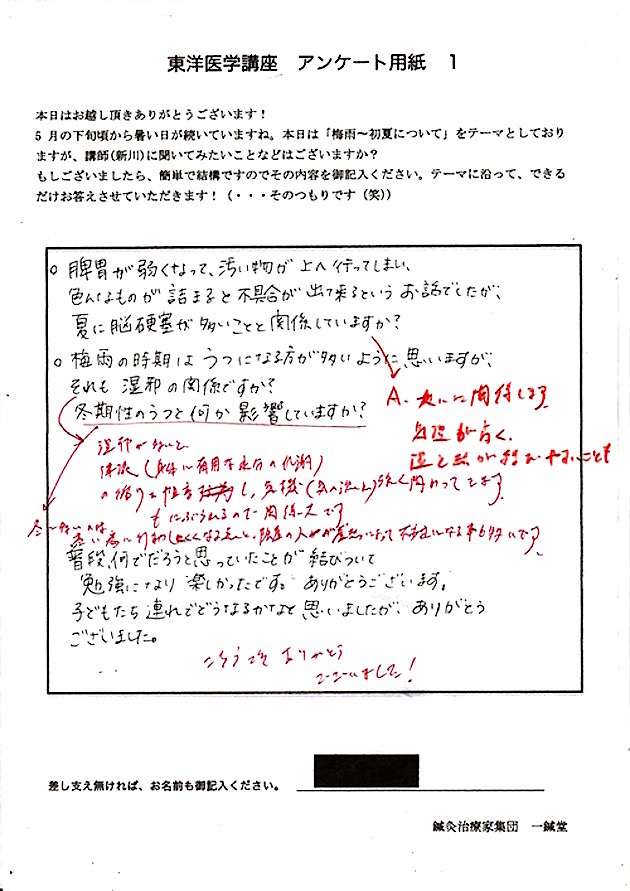 東洋医学講座 アンケート用紙 1
本日はお越し頂きありがとうございます！
5月の下旬頃から暑い日が続いていますね。本日は「梅雨〜初夏について」をテーマとしており
ますが、講師(新川)に聞いてみたいことなどはございますか？
もしございましたら、簡単で結構ですのでその内容を御記入ください。テーマに沿って、できる
だけお答えさせていただきます！（・・・そのつもりです（笑））
○ 脾胃が弱くなって、汚い物が上へ行ってしまい、
色んなものが詰まると不具合が出て来るというお話でしたが、
夏に脳硬塞が多いことと関係していますか？
○ 梅雨の時期はうつになる方が多いように思いますが、
それも湿邪の関係ですか？
冬期性のうつと何か影響していますか？
A. 大いに関係します
気温が高く、
湿邪がないと
津液(身体に有用な水分の代謝)
の
普段、何でだろうと思っていたことが結びついて
勉強になり楽しかったです。ありがとうございます。
子どもたち連れでどうなるかなと思いましたが、ありがとう
ございました。
こちらこそ ありがとう
ございました！
差し支え無ければ、お名前も御記入ください。
鍼灸治療家集団 一鍼堂